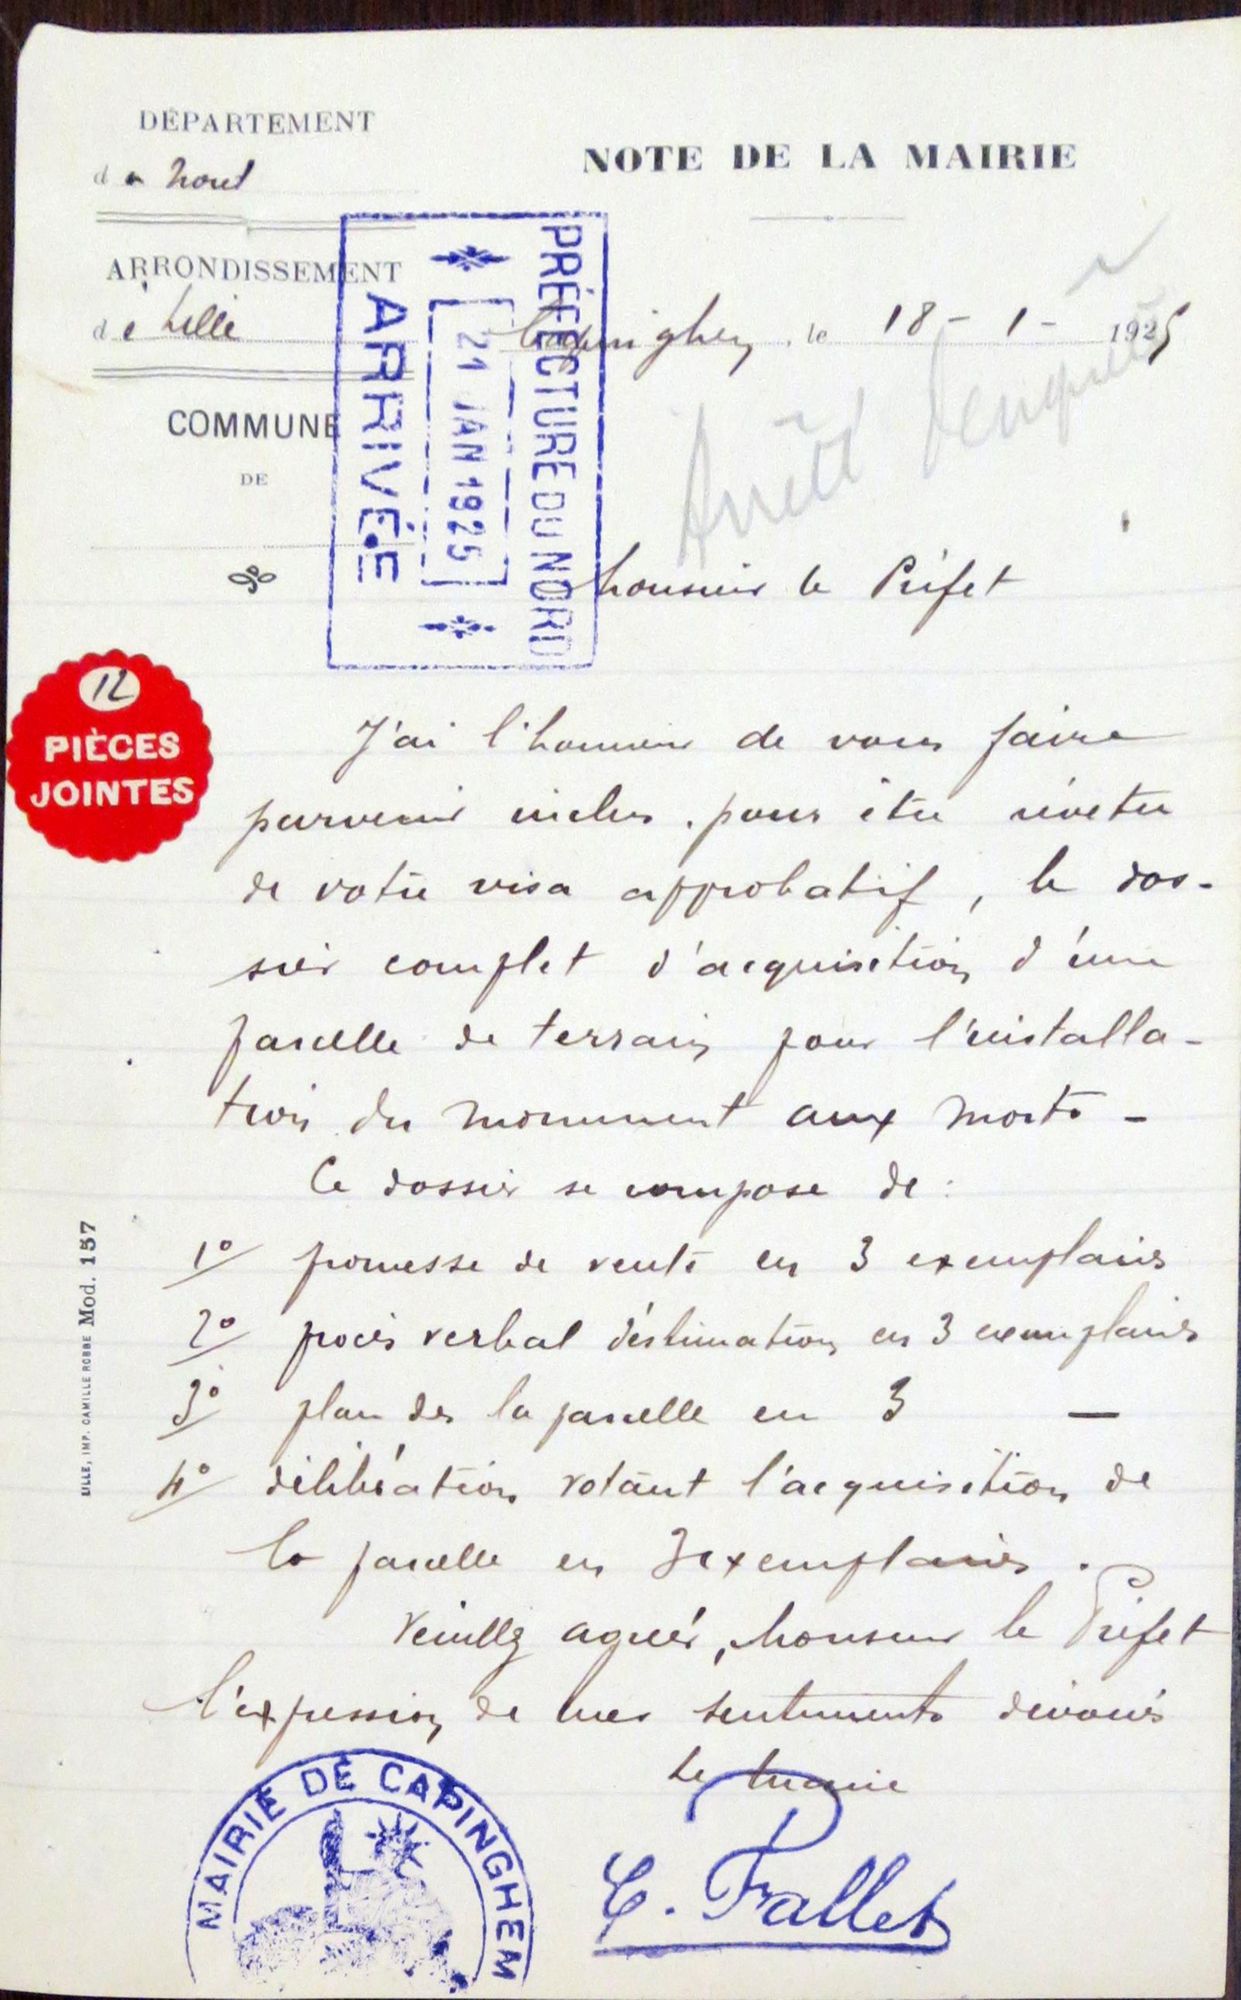 DÉPARTEMENT
du Nord
NOTE DE LA MAIRIE
ARRONDISSEMENT
de Lille
PRÉFECTURE DU NORD
21 JAN 1925
ARRIVÉE
Capinghem, le 18 - 1 - 1925
COMMUNE
DE
Arrêté d'enquête
Monsieur le Préfet
12
PIÈCES
JOINTES
J'ai l'honneur de vous faire
parvenir inclus, pour être revêtu
de votre visa approbatif, le dos-
sier complet d'acquisition d'une
parcelle de terrain pour l'installa-
tion du monument aux morts -
Ce dossier se compose de :
1° promesse de vente en 3 exemplaires
2° procès verbal d'estimation en 3 exemplaires
3° plan de la parcelle en 3 —
4° délibération votant l'acquisition de
la parcelle en 3 exemplaires.
Veuillez agréer, Monsieur le Préfet
l'expression de mes sentiments dévoués
Le Maire
MAIRIE DE CAPINGHEM
LILLE, IMP. CAMILLE ROBBE Mod. 157